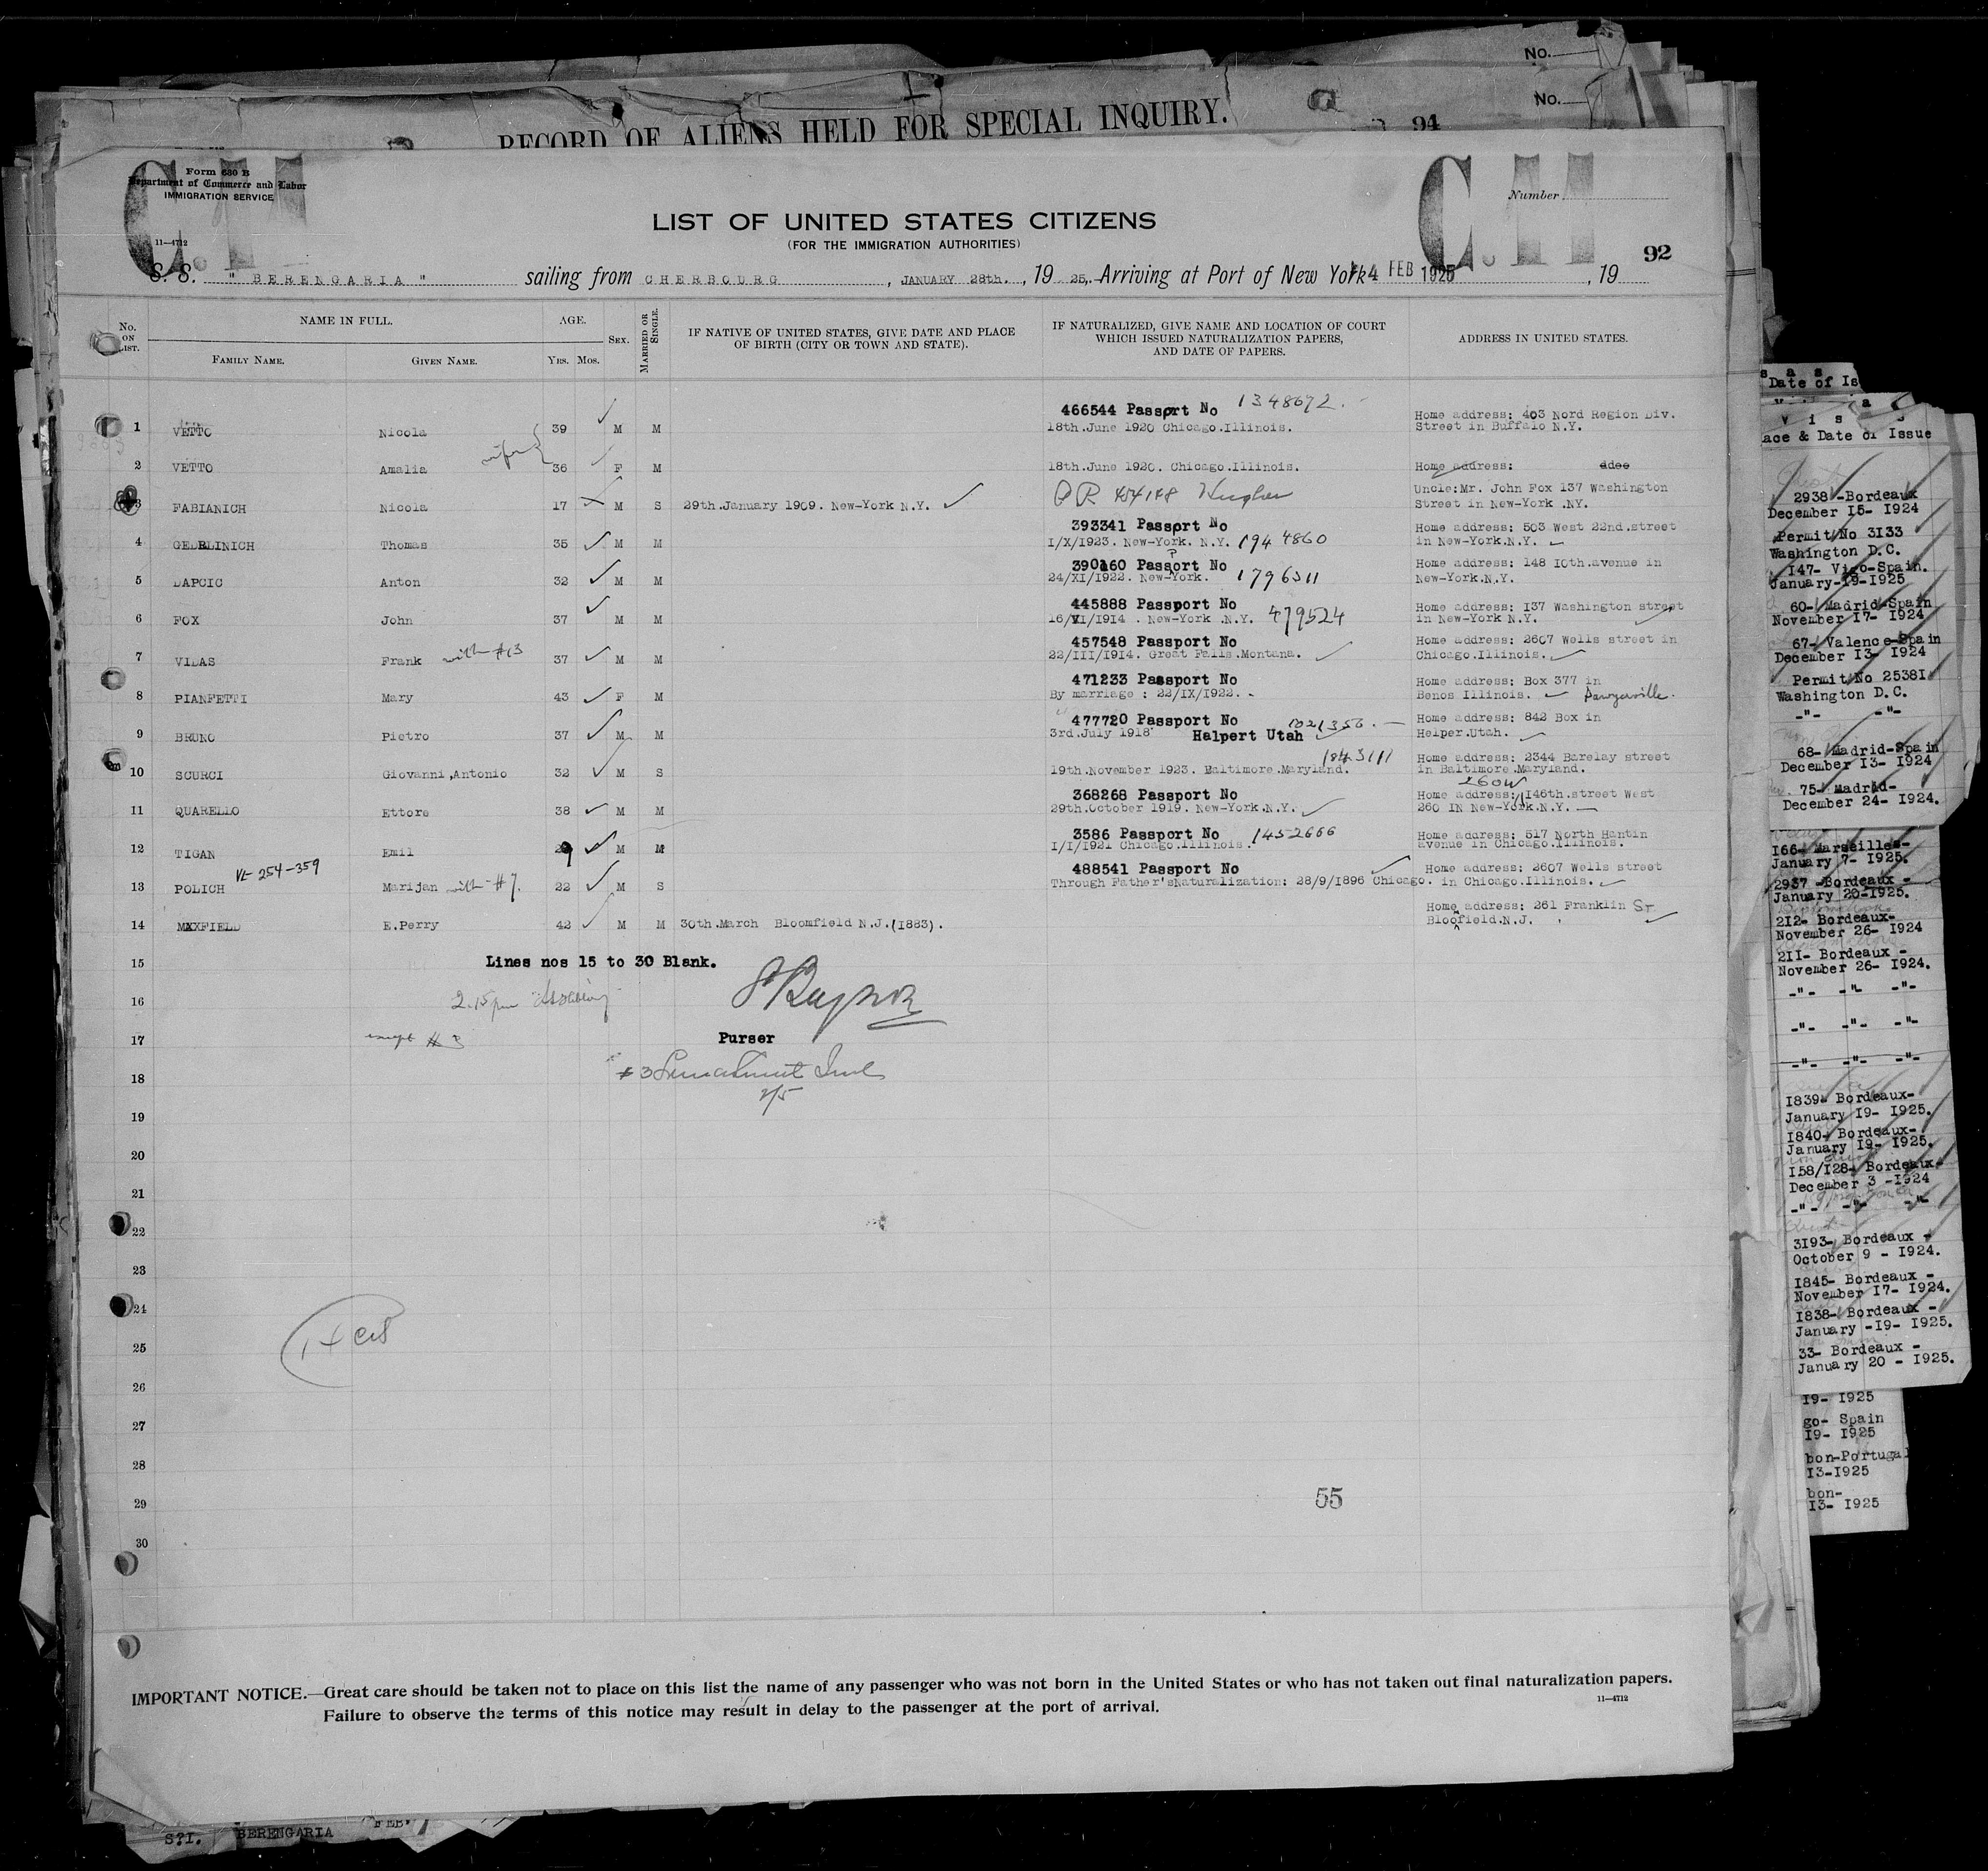 No.
No.
RECORD OF ALIENS HELD FOR SPECIAL INQUIRY.
94
C.
C.
Form 630 B
Department of Commerce and Labor
IMMIGRATION SERVICE
11—4712
Number
LIST OF UNITED STATES CITIZENS
(FOR THE IMMIGRATION AUTHORITIES)
92
S. S. " BERENGARIA " sailing from CHERBOURG, JANUARY 28th., 19 25, Arriving at Port of New York 4 FEB 1925, 19
No. ON LIST.
NAME IN FULL.
FAMILY NAME.
GIVEN NAME.
AGE.
YRS. MOS.
SEX.
MARRIED OR SINGLE.
IF NATIVE OF UNITED STATES, GIVE DATE AND PLACE
OF BIRTH (CITY OR TOWN AND STATE).
IF NATURALIZED, GIVE NAME AND LOCATION OF COURT
WHICH ISSUED NATURALIZATION PAPERS,
AND DATE OF PAPERS.
ADDRESS IN UNITED STATES.
466544 Passport No 1348672.
Home address: 403 Nord Region Div.
1 VETTO Nicola 39 M M 18th.June 1920 Chicago.Illinois. Street in Buffalo N.Y.
wife
2 VETTO Amalia 36 F M 18th.June 1920. Chicago.Illinois. Home address: ddee
Uncle:Mr. John Fox 137 Washington
3 FABIANICH Nicola 17 M S 29th.January 1909. New-York N.Y. Street in New-York .NY.
393341 Passport No
Home address: 503 West 22nd.street
4 GEDRLINICH Thomas 35 M M I/X/1923. New-York. N.Y. 194 4860 in New-York.N.Y.
390160 Passport No
Home address: 148 IOth.avenue in
5 DAPCIC Anton 32 M M 24/XI/1922. New-York. 1796311 New-York.N.Y.
445888 Passport No
Home address: I37 Washington street
6 FOX John 37 M M 16/VI/I914 . New-York .N.Y. 479524 in New-York N.Y.
457548 Passport No
Home address: 2607 Wells street in
7 VIDAS Frank with #13 37 M M 22/III/1914. Great Falls.Montana. Chicago.Illinois.
471233 Passport No
Home address: Box 377 in
8 PIANFETTI Mary 43 F M By marriage : 22/IX/1922. Benos Illinois.
477720 Passport No 1021356.
Home address: 842 Box in
9 BRUNO Pietro 37 M M 3rd.July 1918 Halpert Utah Helper.Utah.
1843111
Home address: 2344 Barelay street
10 SCURCI Giovanni,Antonio 32 M S 19th.November 1923. Baltimore.Maryland. in Baltimore.Maryland.
260W
368268 Passport No
Home address: I46th.street West
11 QUARELLO Ettore 38 M M 29th.October 1919. New-York.N.Y. 260 IN New-York.N.Y.
3586 Passport No 1452666
Home address: 517 North Hantin
12 TIGAN Emil 29 M M I/I/1921 Chicago.Illinois. avenue in Chicago.Illinois.
VL-254-359
488541 Passport No
Home address: 2607 Wells street
13 POLICH Marijan with #7. 22 M S Through Father'sNaturalization: 28/9/1896 Chicago. in Chicago.Illinois.
Home address: 261 Franklin St
14 MAXFIELD E.Perry 42 M M 30th.March Bloomfield N.J.(1883). Bloofield.N.J.
15 Lines nos 15 to 30 Blank.
16 2.15pm
17 except #3
Purser
18 #3
2/5
19
20
21
22
23
24
25
26
27
28
29
55
30
IMPORTANT NOTICE.—Great care should be taken not to place on this list the name of any passenger who was not born in the United States or who has not taken out final naturalization papers.
Failure to observe the terms of this notice may result in delay to the passenger at the port of arrival.
11—4712
S?I. BERENGARIA FEB
s a s
Date of Is
V i s a s
ace & Date of Issue
2938-Bordeaux
December I5- I924
Permit No 3I33
Washington D.C.
I47- Vigo-Spain.
January-I9-I925
60- Madrid-Spain
November I7- I924
67- Valence-Spain
December I3- I924
Permit No 2538I
Washington D.C.
-"- -"-
68- Madrid-Spain
December I3- I924
75- Madrid-
December 24- I924.
I66- Marseilles-
January 7- I925.
2937 -Bordeaux -
January 20-I925.
2I2- Bordeaux-
November 26- I924
2II- Bordeaux -
November 26- I924.
-"- -"- -"-
-"- -"- -"-
-"- -"- -"-
I839- Bordeaux-
January I9- I925.
I840- Bordeaux-
January I9- I925.
I58/I28- Bordeaux-
December 3 -I924
-"- -"- -"-
3I93- Bordeaux -
October 9 - I924.
I845- Bordeaux -
November I7- I924.
I838- Bordeaux -
January -I9- I925.
33- Bordeaux -
January 20 - I925.
I9- I925
go- Spain
I9- I925
bon-Portugal
I3-I925
bon-
I3- I925